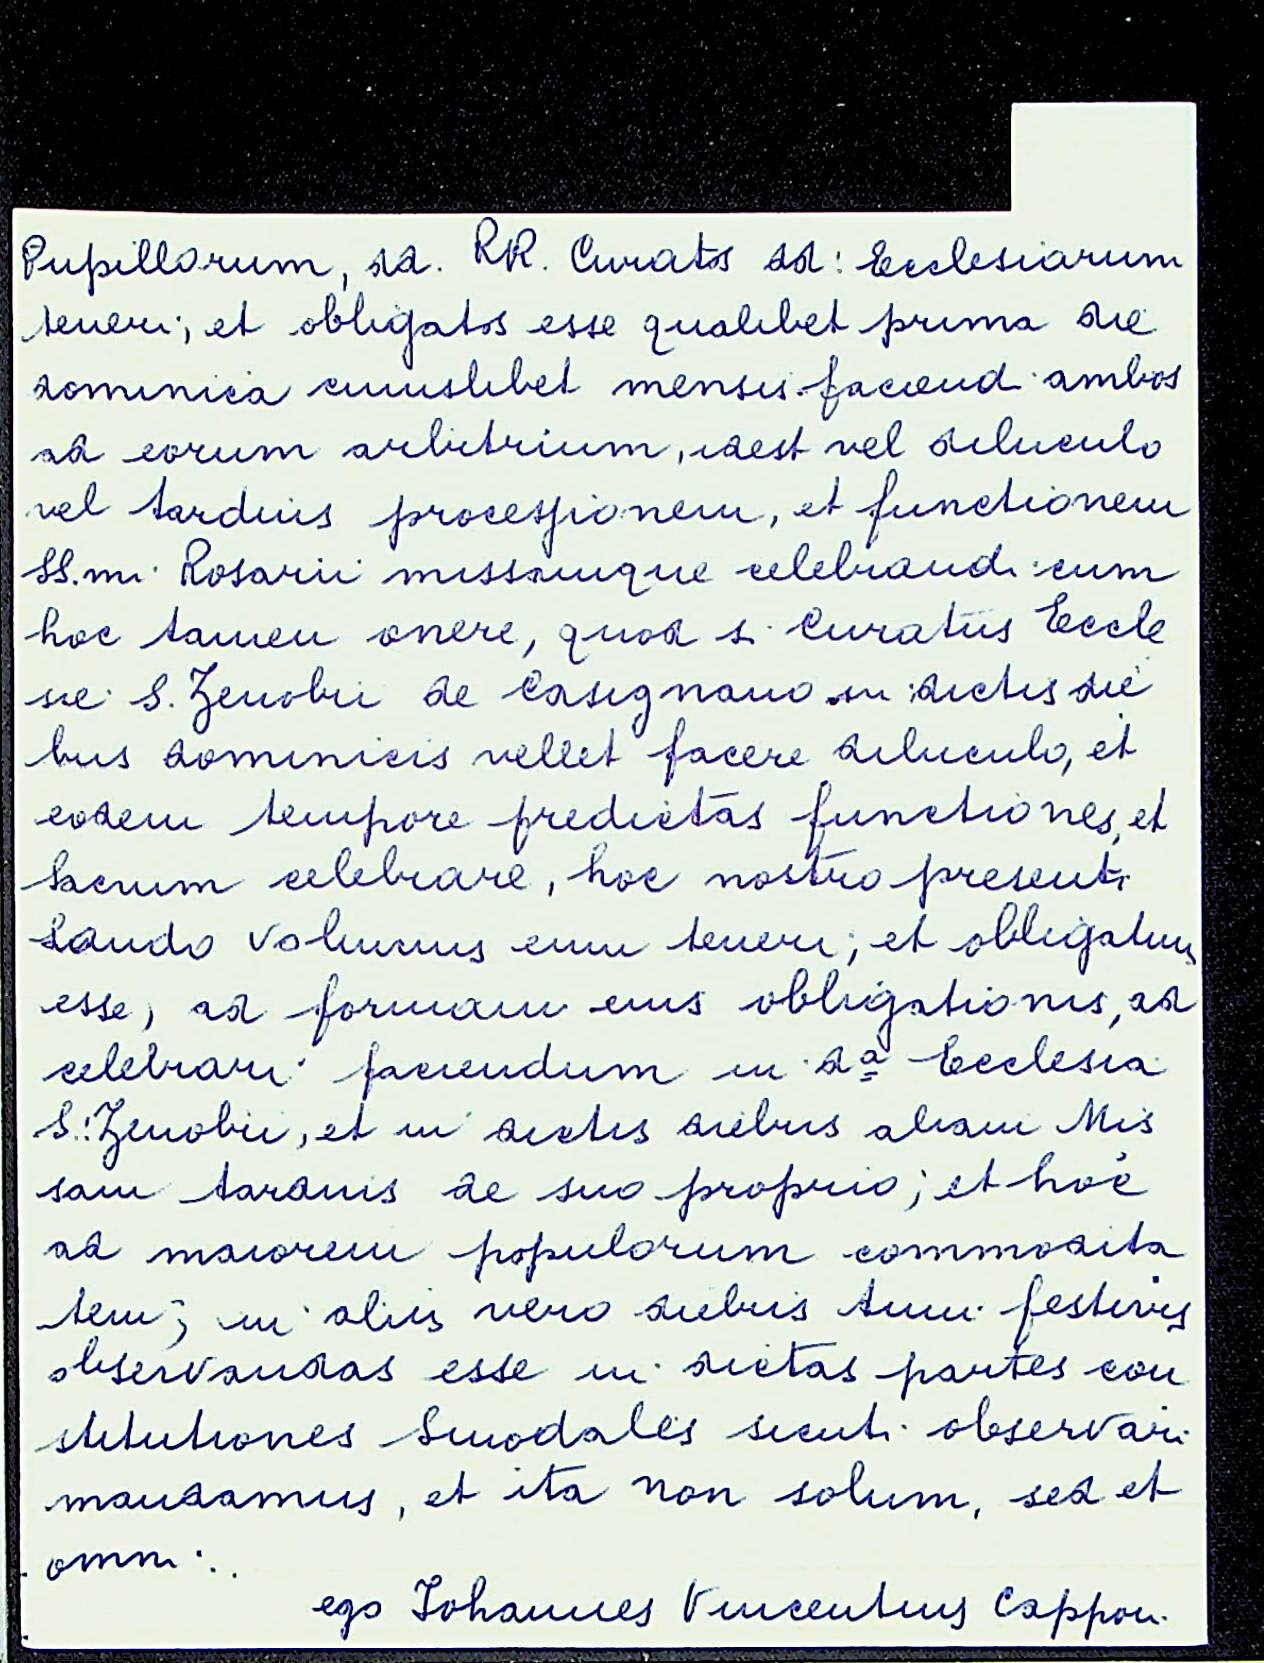 Pupillorum, dd. RR. Curatos dd: Ecclesiarum
teneri; et obligatos esse qualibet prima die
dominica cuiuslibet mensis faciend. ambos
ad eorum arbitrium, idest vel diluculo
vel tardius processionem, et functionem
SS.mi Rosarii missamque celebrandi cum
hoc tamen onere, quod si Curatus Eccle
sie S. Zenobii de Casignano in dictis die
bus dominicis vellet facere diluculo, et
eodem tempore predictas functiones, et
Sacrum celebrare, hoc nostro presenti
Laudo volumus eum teneri; et obligatum
esse, ad formam eius obligationis, ad
celebrari faciendum in dª Ecclesia
S: Zenobii, et in dictis diebus aliam Mis
sam tardius de suo proprio; et hoc
ad maiorem populorum commodita
tem; in aliis vero diebus tum festivis
observandas esse in dictas partes con
stitutiones Sinodales sicuti observari
mandamus, et ita non solum, sed et
omni..
ego Johannes Vincentius Capponi